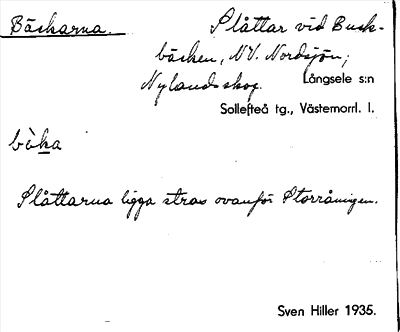 Bäckarna.
Slåttar vid Busk-
bäcken, NV. Nordsjön,
Nylandsskog. Långsele s:n
Sollefteå tg., Västernorrl. l.
bòka
Slåttarna ligga strax ovanför Storråningen.
Sven Hiller 1935.